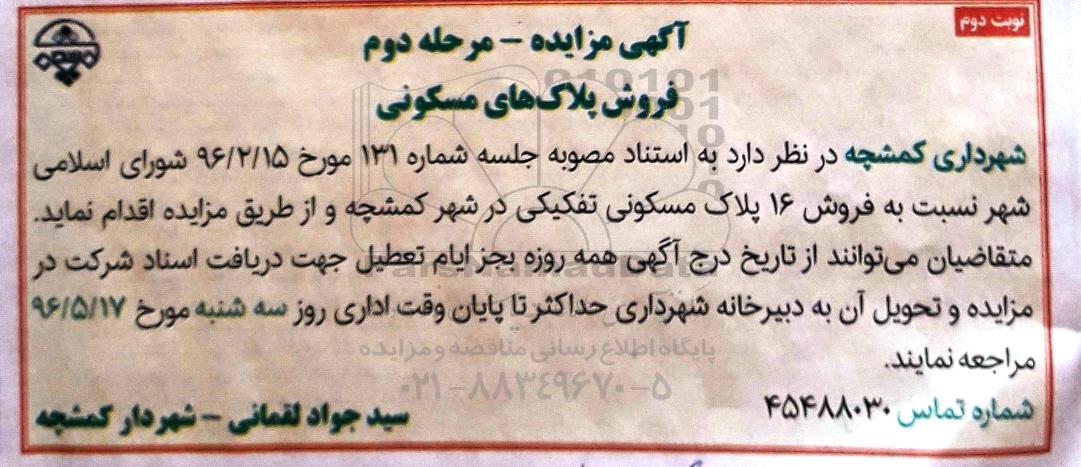 نوبت دوم
آگهی مزایده – مرحله دوم
فروش پلاک‌های مسکونی
شهرداری کمشچه در نظر دارد به استناد مصوبه جلسه شماره ۱۳۱ مورخ ۹۶/۲/۱۵ شورای اسلامی
شهر نسبت به فروش ۱۶ پلاک مسکونی تفکیکی در شهر کمشچه و از طریق مزایده اقدام نماید.
متقاضیان می‌توانند از تاریخ درج آگهی همه روزه بجز ایام تعطیل جهت دریافت اسناد شرکت در
مزایده و تحویل آن به دبیرخانه شهرداری حداکثر تا پایان وقت اداری روز سه شنبه مورخ ۹۶/۵/۱۷
مراجعه نمایند.
شماره تماس ۴۵۴۸۸۰۳۰
سید جواد لقمانی – شهردار کمشچه
پایگاه اطلاع رسانی مناقصه و مزایده
۰۲۱-۸۸۳۴۹۶۷۰-۵